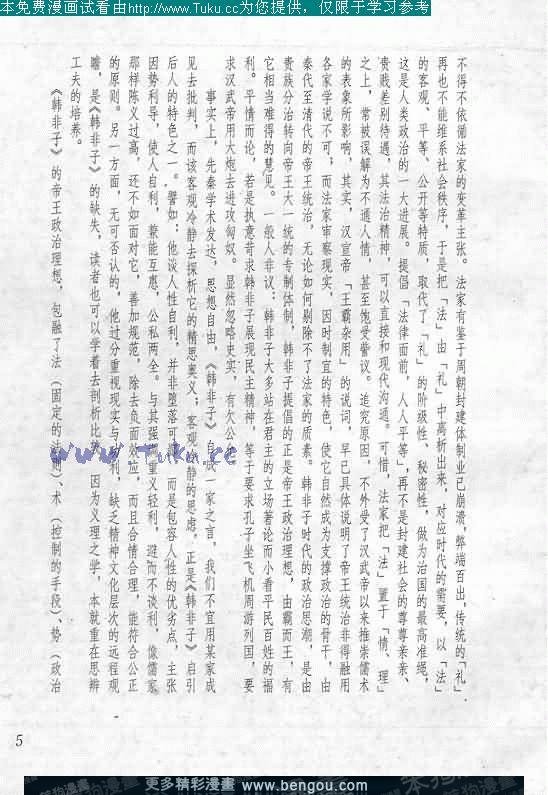 本免费漫画试看由http://www.Tuku.cc为您提供，仅限于学习参考
不得不依循法家的变革主张。法家有鉴于周朝封建体制业已崩溃，弊端百出，传统的「礼」
再也不能维系社会秩序，于是把「法」由「礼」中离析出来，对应时代的需要，以「法」
的客观、平等、公开等特质，取代了「礼」的阶级性、秘密性，做为治国的最高准绳，
这是人类政治的一大进展。提倡「法律面前，人人平等」，再不是封建社会的尊尊亲亲、
贵贱差别待遇，其法治精神，可以直接和现代沟通。可惜，法家把「法」置于「情、理」
之上，常被误解为不通人情，甚至饱受訾议。追究原因，不外受了汉武帝以来推崇儒术
的表象所影响，其实，汉宣帝「王霸杂用」的说词，早已具体说明了帝王统治非得融用
各家学说不可；而法家审察现实，因时制宜的特色，使它自然成为支撑政治的骨干，由
秦代至清代的帝王统治，无论如何剔除不了法家的质素。韩非子时代的政治思潮，是由
贵族分治转向帝王大一统的专制体制，韩非子提倡的正是帝王政治理想，由霸而王，有
它相当难得的慧见。一般人非议：韩非子大多站在君主的立场著论而小看平民百姓的福
利。平情而论，若是执意苛求韩非子展现民主精神，等于要求孔子坐飞机周游列国，要
求汉武帝用大炮去进攻匈奴。显然忽略史实，有欠公
事实上，先秦学术发达，思想自由，《韩非子》自成一家之言，我们不宜用某家成
见去批判，而该客观冷静去探析它的精思奥义；客观冷静的思虑，正是《韩非子》启引
后人的特色之一。譬如：他谈人性自利，并非堕落可　，而是包容人性的优劣点，主张
因势利导，使人自利，兼能互惠，公私两全。与其强　重义轻利，避而不谈利，像儒家
那样陈义过高，还不如面对它，善加规范，除去负面效应，而且合情合理，能符合公正
的原则。另一方面，无可否认的，他过分重视现实与功利，缺乏精神文化层次的远程观
瞻，是《韩非子》的缺失，读者也可以学着去剖析比　，因为义理之学，本就重在思辨
工夫的培养。
《韩非子》的帝王政治理想，包融了法（固定的法则）、术（控制的手段）、势（政治
www.Tuku.cc
5
更多精彩漫畫 www.bengou.com